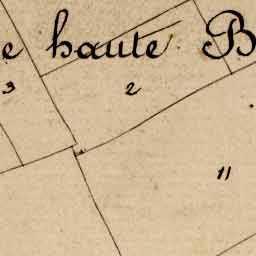 e haute B
3 2
11